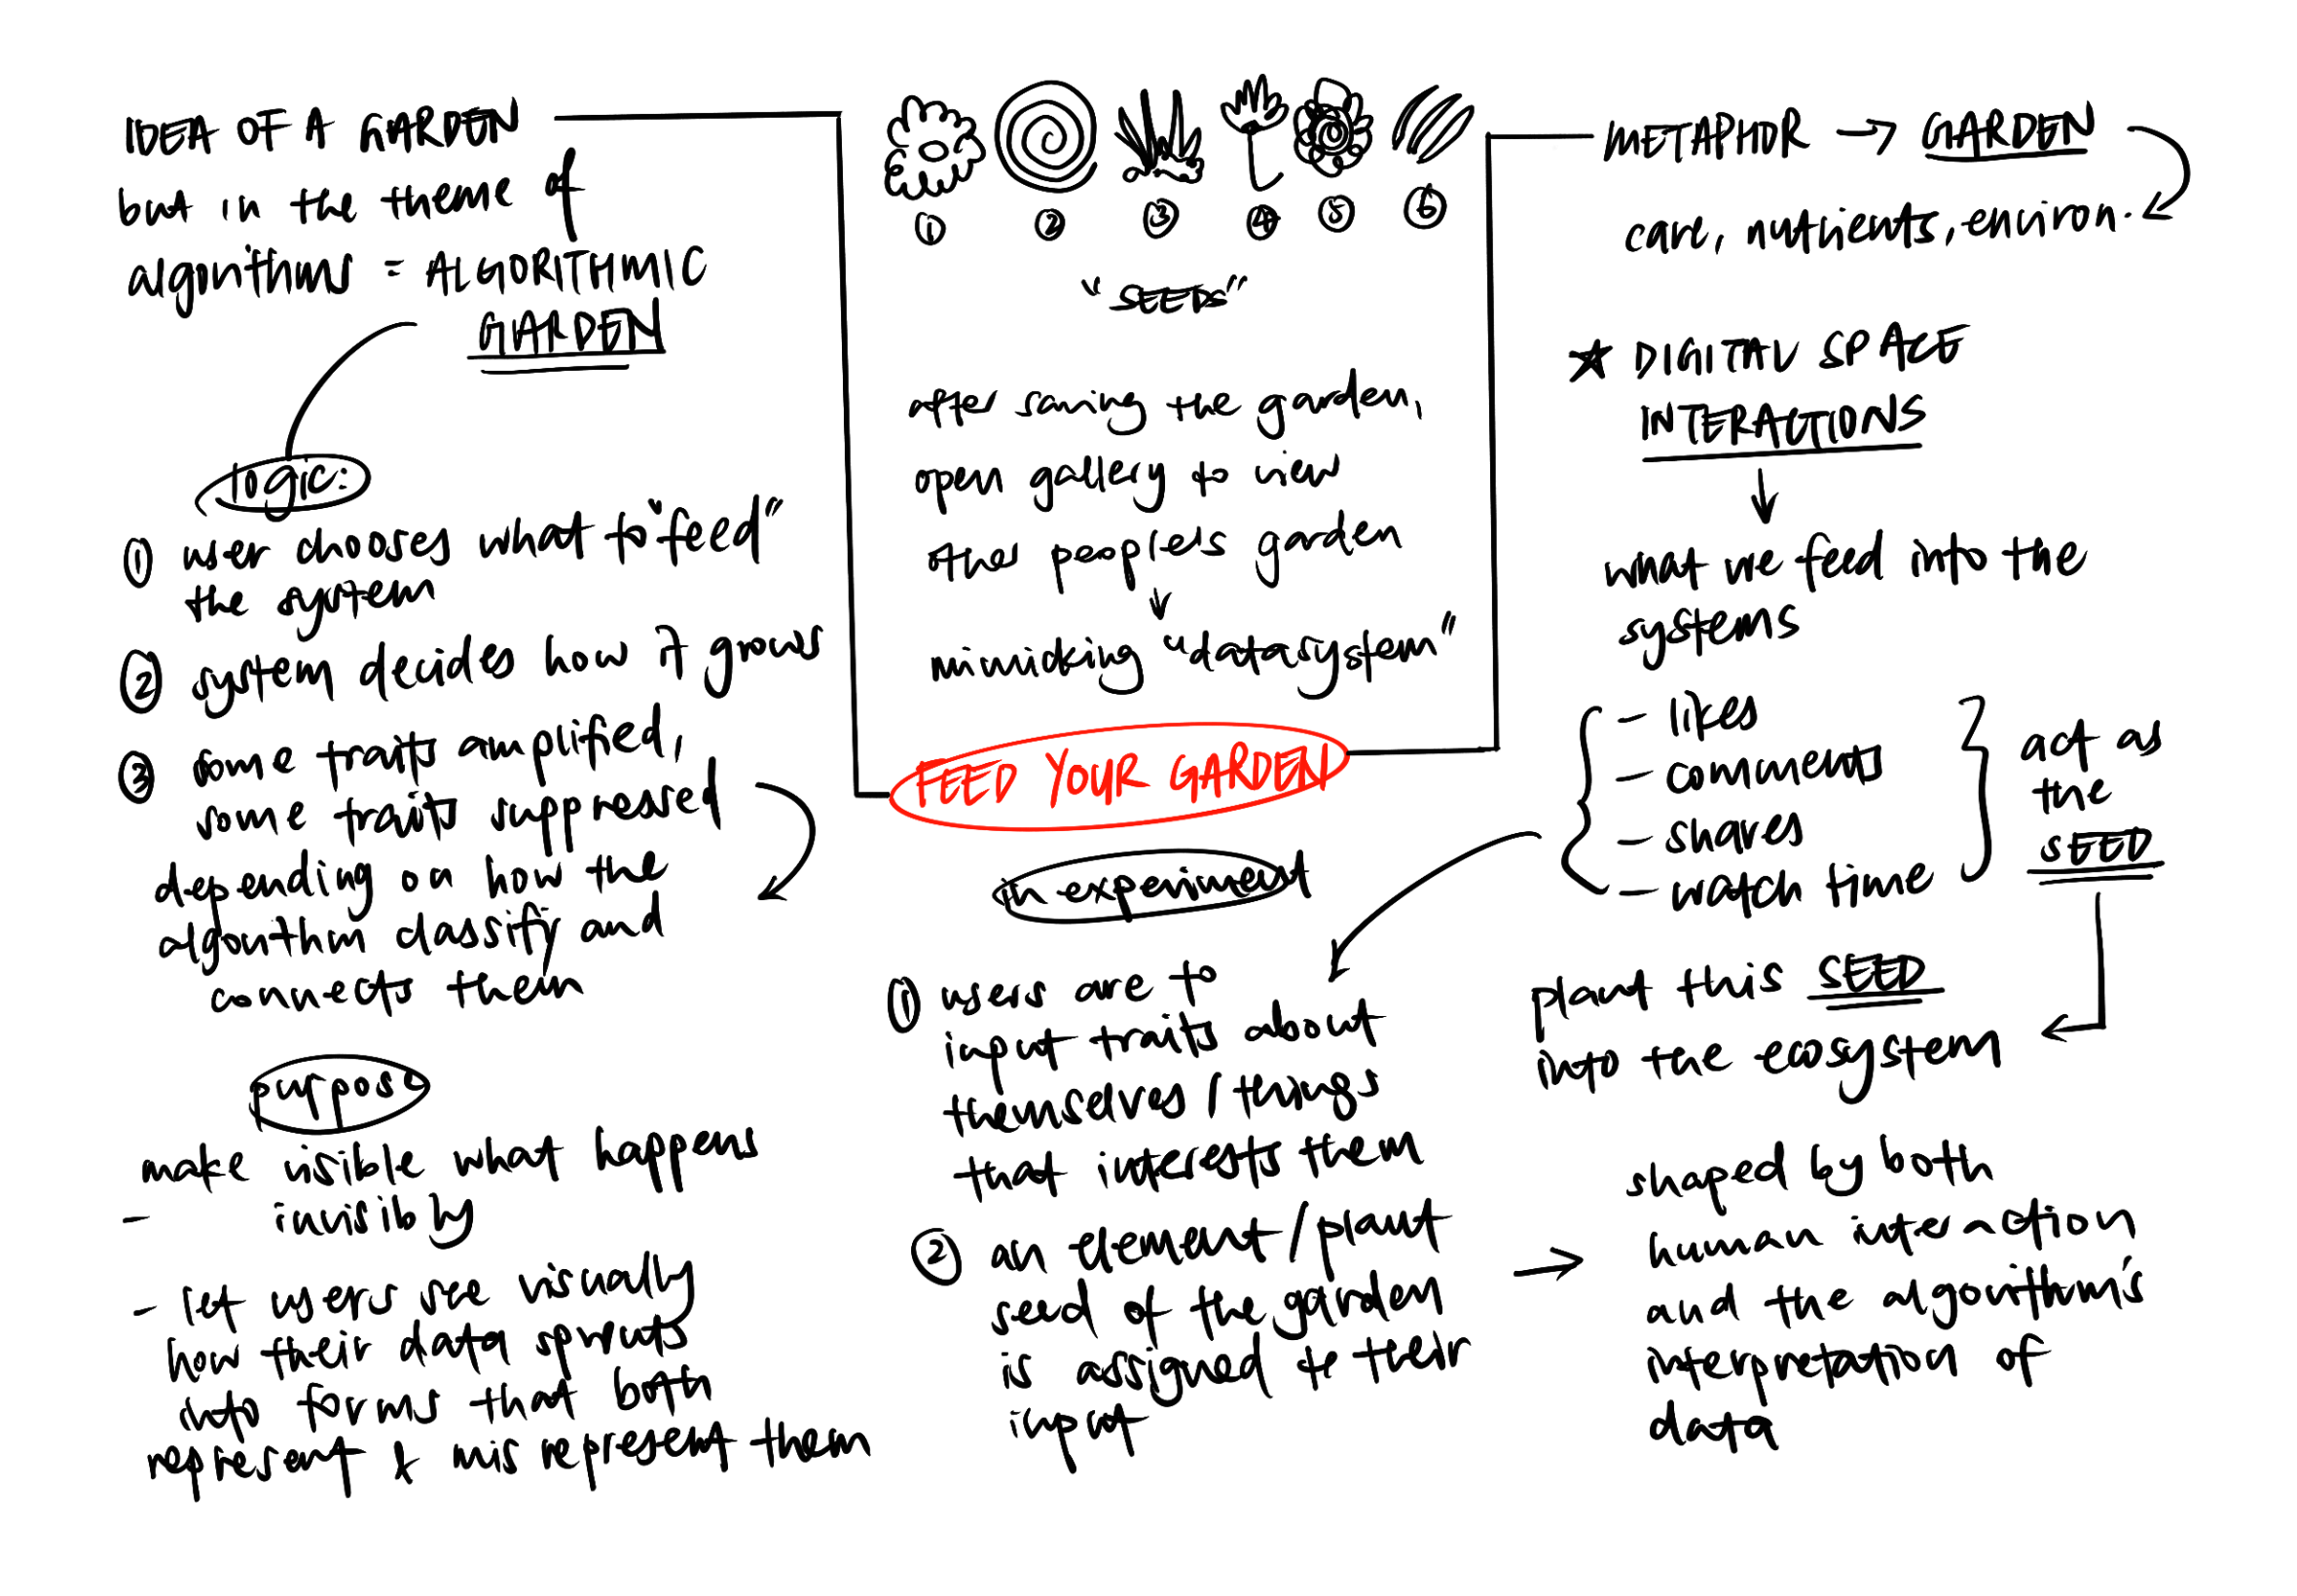 IDEA OF A GARDEN
but in the theme of
algorithms = ALGORITHMIC
GARDEN
logic:
① user chooses what to "feed"
the system
② system decides how it grows
③ some traits amplified,
some traits suppressed
depending on how the
algorithm classify and
connects them
purpose
make visible what happens
- invisibly
- let users see visually
how their data sprouts
into forms that both
represent & misrepresent them
① ② ③ ④ ⑤ ⑥
"SEEDS"
after saving the garden,
open gallery to view
other people's garden
mimicking "datasystem"
FEED YOUR GARDEN
in experiment
① users are to
input traits about
themselves / things
that interests them
② an element / plant
seed of the garden
is assigned to their
input
METAPHOR → GARDEN
care, nutrients, environ.
★ DIGITAL SPACE
INTERACTIONS
what we feed into the
systems
- likes
- comments
- shares
- watch time
act as
the
SEED
plant this SEED
into the ecosystem
shaped by both
human interaction
and the algorithm's
interpretation of
data